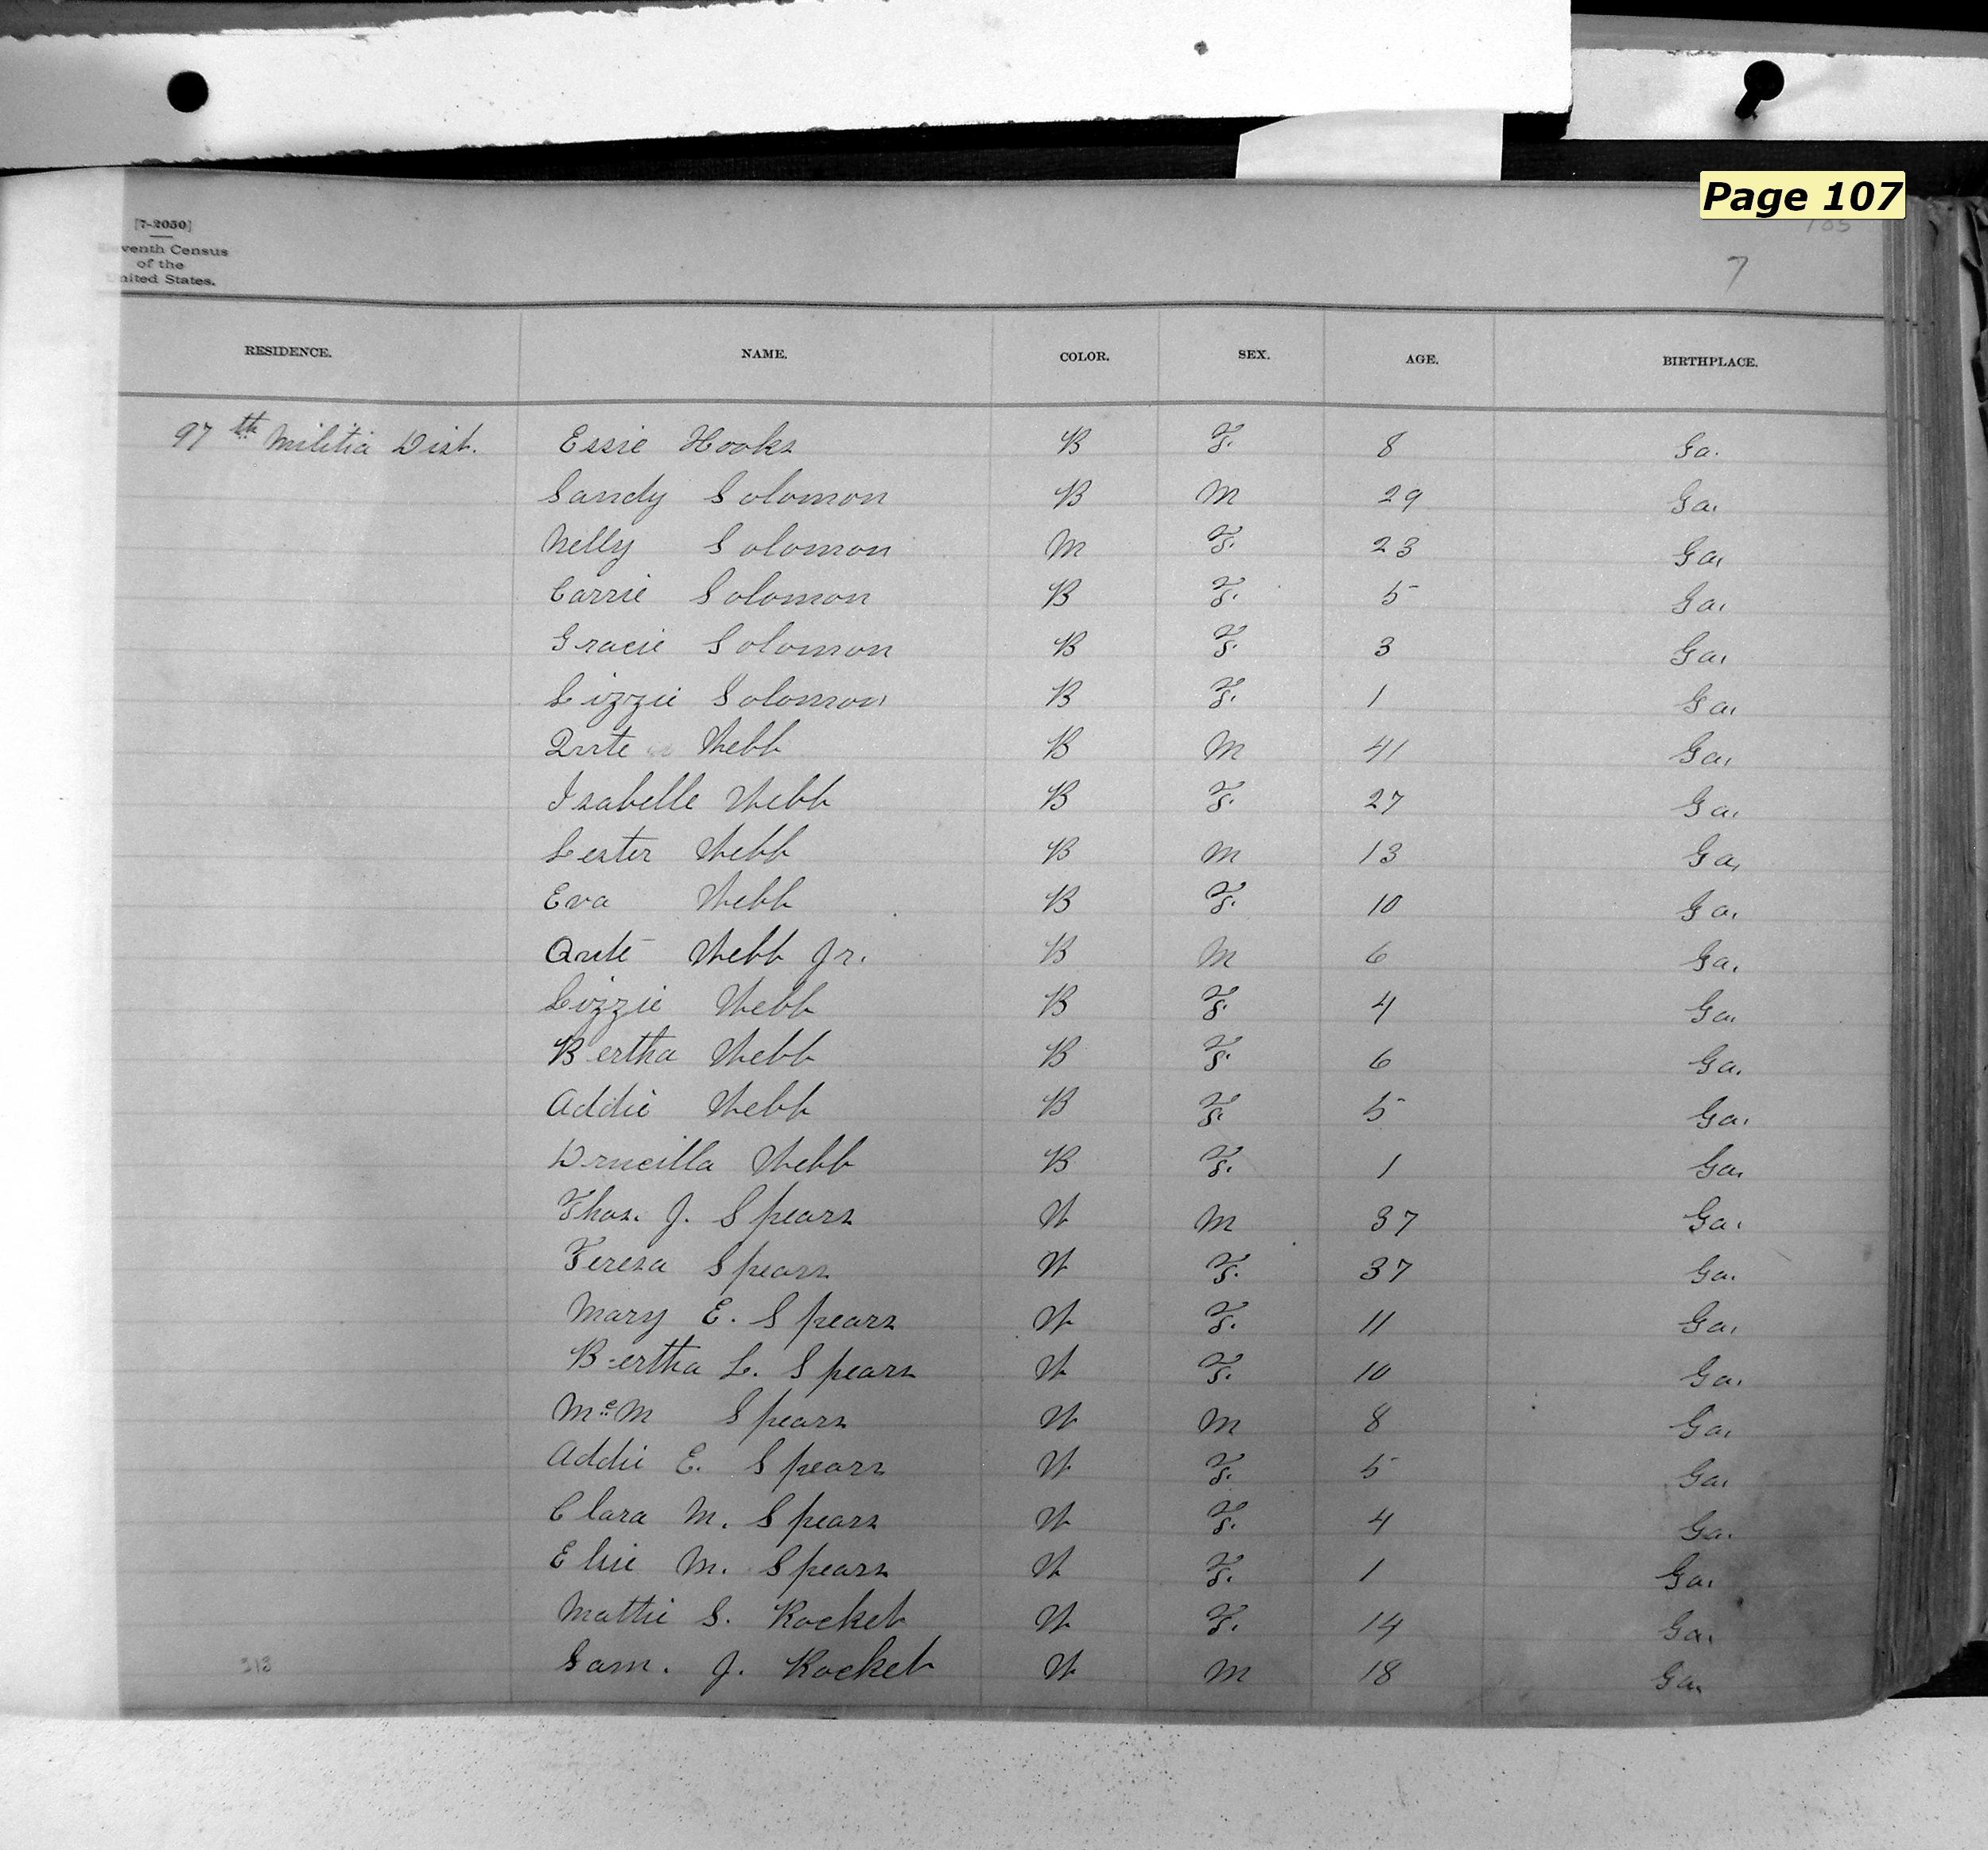 Page 107
[7-2050]
Eleventh Census
of the
United States.
7
RESIDENCE. NAME. COLOR. SEX. AGE. BIRTHPLACE.
97th Militia Dist. Essie Hooks B F. 8 Ga.
Sandy Solomon B M 29 Ga.
Nelly Solomon M F. 23 Ga.
Carrie Solomon B F. 5 Ga.
Gracie Solomon B F. 3 Ga.
Lizzie Solomon B F. 1 Ga.
Webb B M 41 Ga.
Isabelle Webb B F. 27 Ga.
Lester Webb B M 13 Ga.
Eva Webb B F. 10 Ga.
Webb Jr. B M 6 Ga.
Lizzie Webb B F. 4 Ga.
Bertha Webb B F. 6 Ga.
Addie Webb B F. 5 Ga.
Drucilla Webb B F. 1 Ga.
Thos. J. Spears W M 37 Ga.
Teresa Spears W F. 37 Ga.
Mary E. Spears W F. 11 Ga.
Bertha L. Spears W F. 10 Ga.
McM Spears W M 8 Ga.
Addie E. Spears W F. 5 Ga.
Clara M. Spears W F. 4 Ga.
M. Spears W F. 1 Ga.
Mattie S. Rocket W F. 14 Ga.
313 Sam. J. Rocket W M 18 Ga.